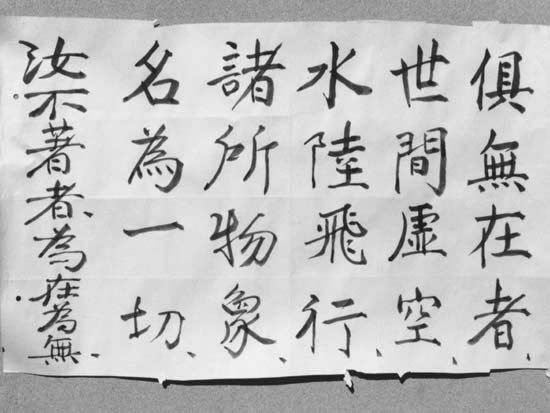 俱無在者、
世間虛空、
水陸飛行、
諸所物象、
名為一切、
汝不著者、為在為無、